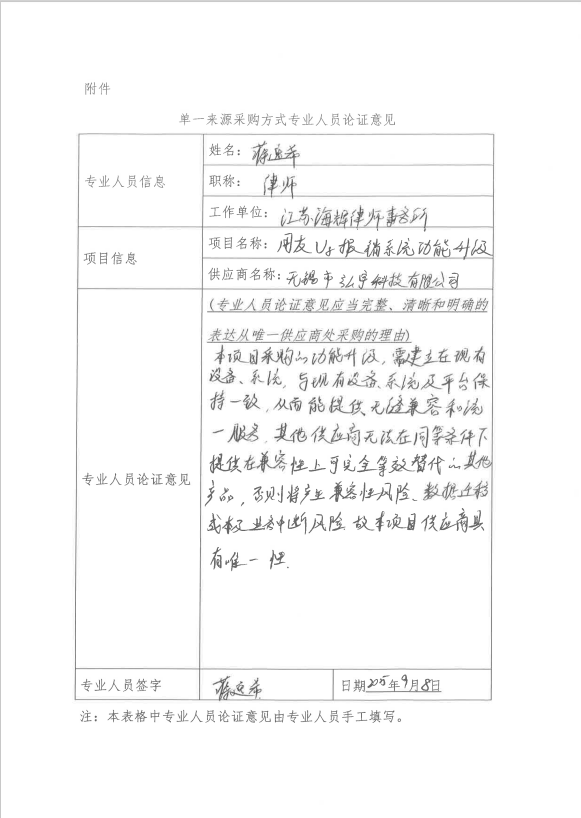 附件
单一来源采购方式专业人员论证意见
专业人员信息
姓名：
职称： 律师
工作单位：江苏海辉律师事务所
项目信息
项目名称：用友U8报销系统功能升级
供应商名称：无锡市弘宇科技有限公司
专业人员论证意见
(专业人员论证意见应当完整、清晰和明确的
表达从唯一供应商处采购的理由)
本项目采购的功能升级，需建立在现有
设备、系统，与现有设备、系统及平台保
持一致，从而能提供无缝兼容和统
一服务，其他供应商无法在同等条件下
提供在兼容性上可完全等效替代的其他
产品，否则将产生兼容性风险、数据迁移
成本及业务中断风险，故本项目供应商具
有唯一性.
专业人员签字
日期2025年9月8日
注：本表格中专业人员论证意见由专业人员手工填写。